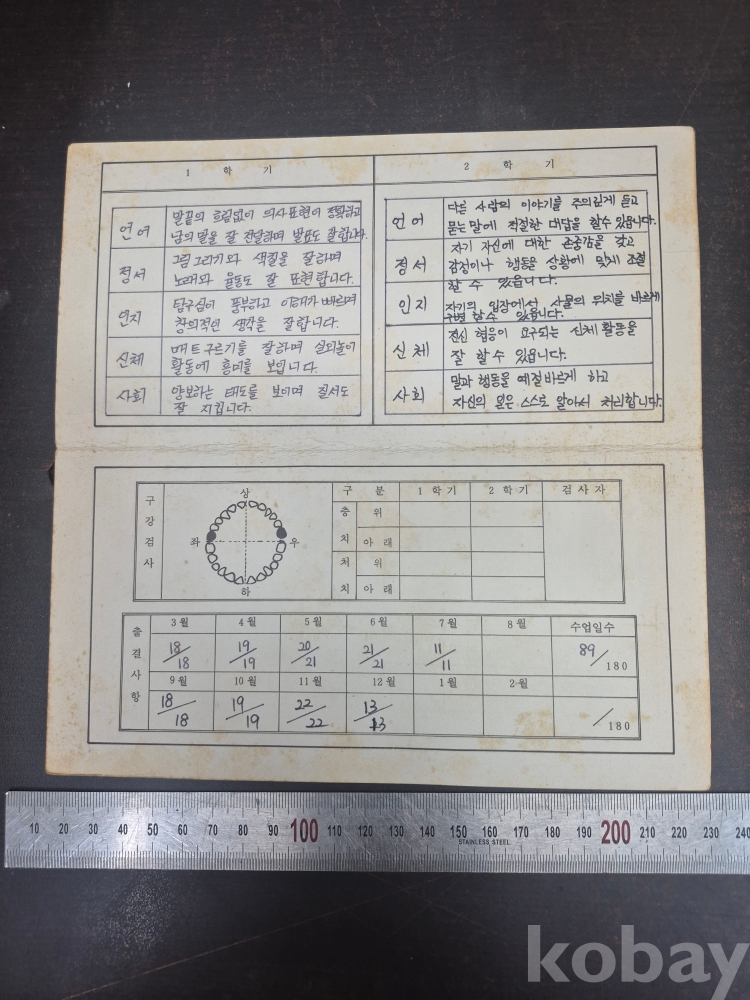 1 학 기
언어
말끝의 흐림없이 의사표현이 정확하고
남의 말을 잘 전달하며 발표도 잘합니다.
정서
그림 그리기와 색칠을 잘하며
노래와 율동도 잘 표현합니다.
인지
탐구심이 풍부하고 이해가 빠르며
창의적인 생각을 잘합니다.
신체
매트 구르기를 잘하며 실외놀이
활동에 흥미를 보입니다.
사회
양보하는 태도를 보이며 질서도
잘 지킵니다.
2 학 기
언어
다른 사람의 이야기를 주의깊게 듣고
묻는 말에 적절한 대답을 할수 있읍니다.
정서
자기 자신에 대한 존중감을 갖고
감정이나 행동을 상황에 맞게 조절
할 수 있읍니다.
인지
자기의 입장에서 사물의 위치를 바르게
구별 할 수 있읍니다.
신체
전신 협응이 요구되는 신체 활동을
잘 할 수 있읍니다.
사회
말과 행동을 예절바르게 하고
자신의 일은 스스로 알아서 처리합니다.
구강검사
상
좌 우
하
구 분 1 학 기 2 학 기 검 사 자
충 치 위
아 래
처 치 위
아 래
출결사항
3 월 4 월 5 월 6 월 7 월 8 월 수업일수
18/18 19/19 20/21 21/21 11/11 89/180
9 월 10 월 11 월 12 월 1 월 2 월
18/18 19/19 22/22 13/13 /180
10 20 30 40 50 60 70 80 90 100 110 120 130 140 150 160 170 180 190 200 210 220 230 240
STAINLESS STEEL
kobay